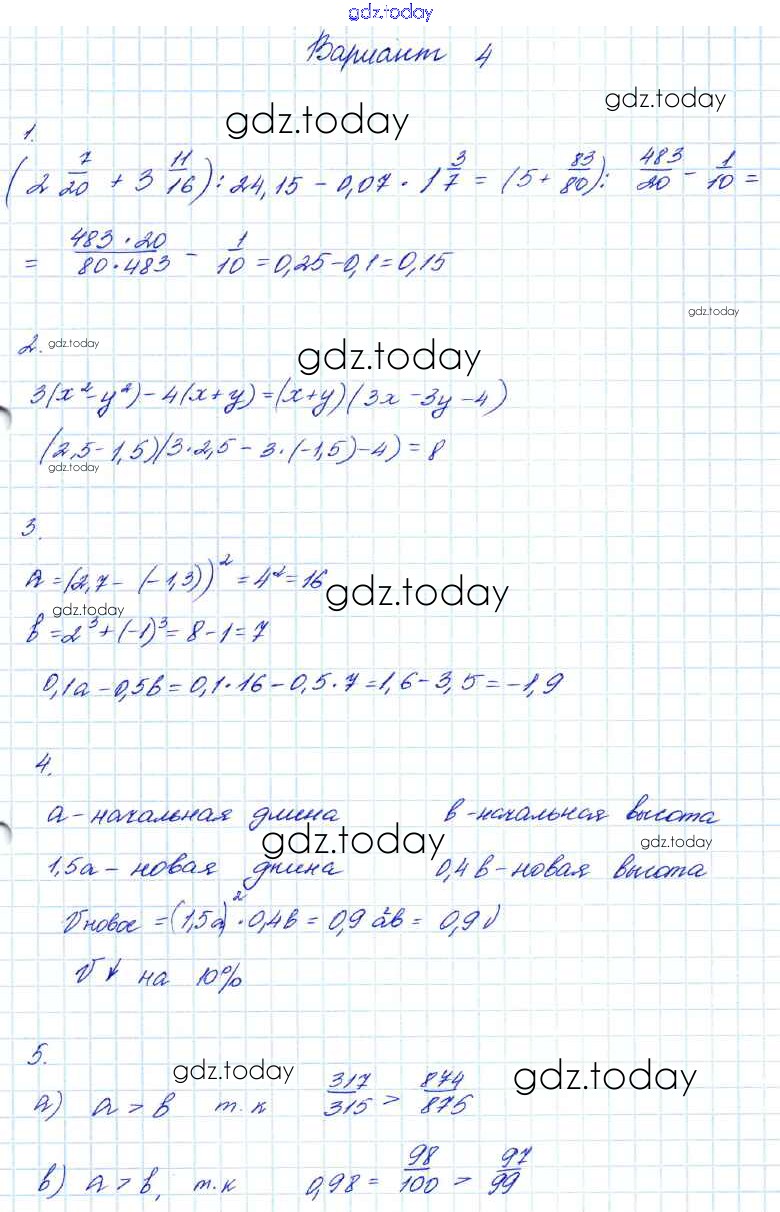 gdz.today
Вариант 4
gdz.today
gdz.today
1.
(2 7/20 + 3 11/16) : 24,15 - 0,07 · 1 3/7 = (5 + 83/80) : 483/20 - 1/10 =
= 483·20/80·483 - 1/10 = 0,25 - 0,1 = 0,15
gdz.today
2. gdz.today
gdz.today
3(x² - y²) - 4(x + y) = (x + y)(3x - 3y - 4)
(2,5 - 1,5)(3·2,5 - 3·(-1,5) - 4) = 8
gdz.today
3.
a = (2,7 - (-1,3))² = 4² = 16
gdz.today
gdz.today
b = 2³ + (-1)³ = 8 - 1 = 7
0,1a - 0,5b = 0,1·16 - 0,5·7 = 1,6 - 3,5 = -1,9
4.
a - начальная длина b - начальная высота
gdz.today
gdz.today
1,5a - новая длина 0,4b - новая высота
Vновое = (1,5a)² · 0,4b = 0,9a²b = 0,9V
V↓ на 10%
5.
gdz.today
gdz.today
a) a > b т.к 317/315 > 874/875
в) a > b, т.к 0,98 = 98/100 > 97/99